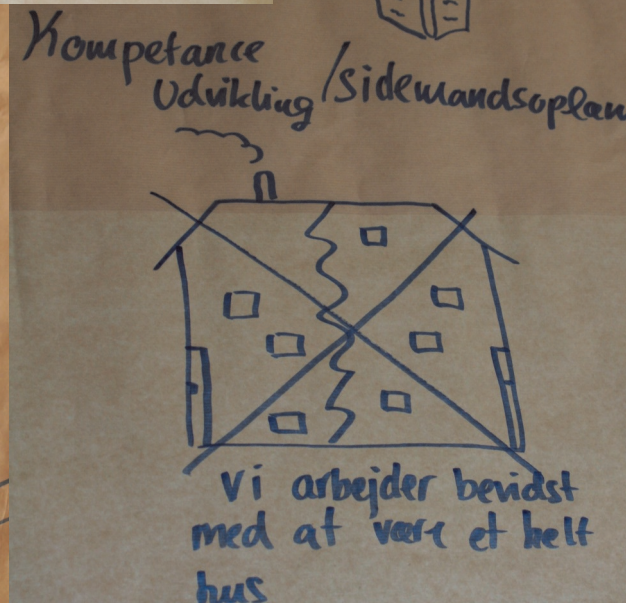 Kompetance
Udvikling /sidemandsoplæn
vi arbejder bevidst
med at være et helt
hus